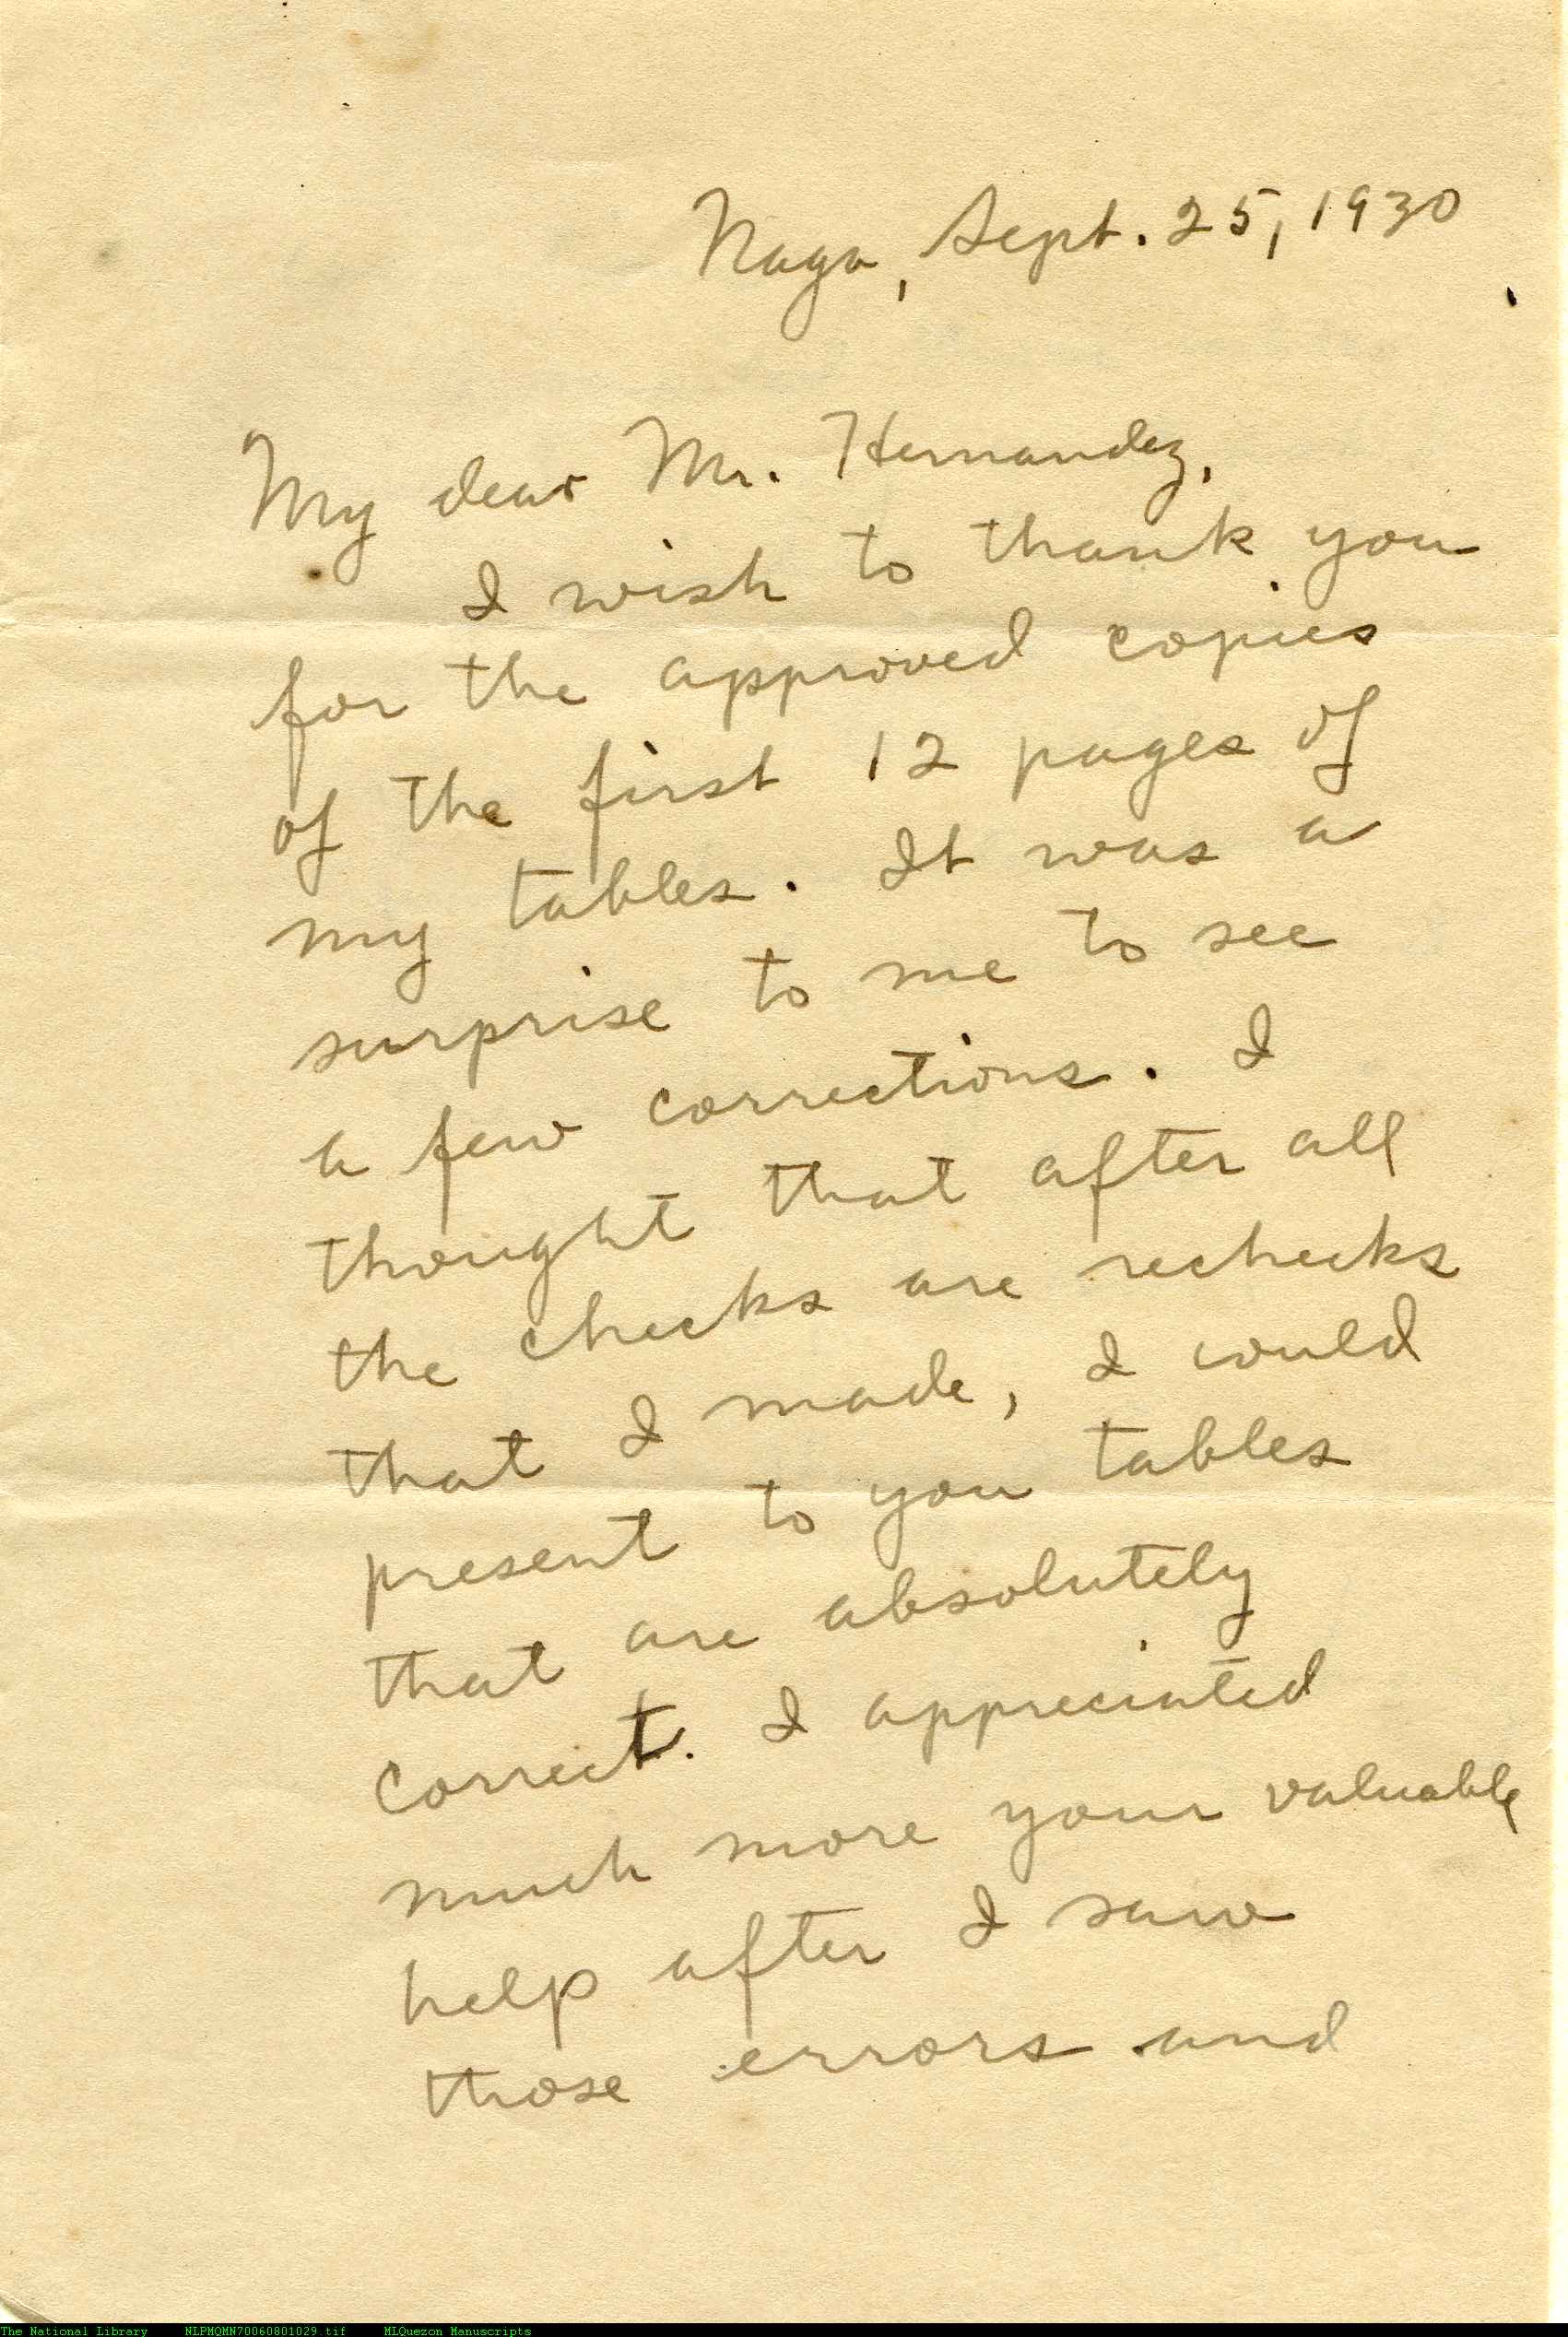 Naga, Sept. 25, 1930
My dear Mr. Hernandez,
I wish to thank you
for the approved copies
of the first 12 pages of
my tables. It was a
surprise to me to see
a few corrections. I
thought that after all
the checks are rechecks
that I made, I would
present to you tables
that are absolutely
correct. I appreciated
much more your valuable
help after I saw
those errors and
The National Library NLPMQMN70060801029.tif MLQuezon Manuscripts